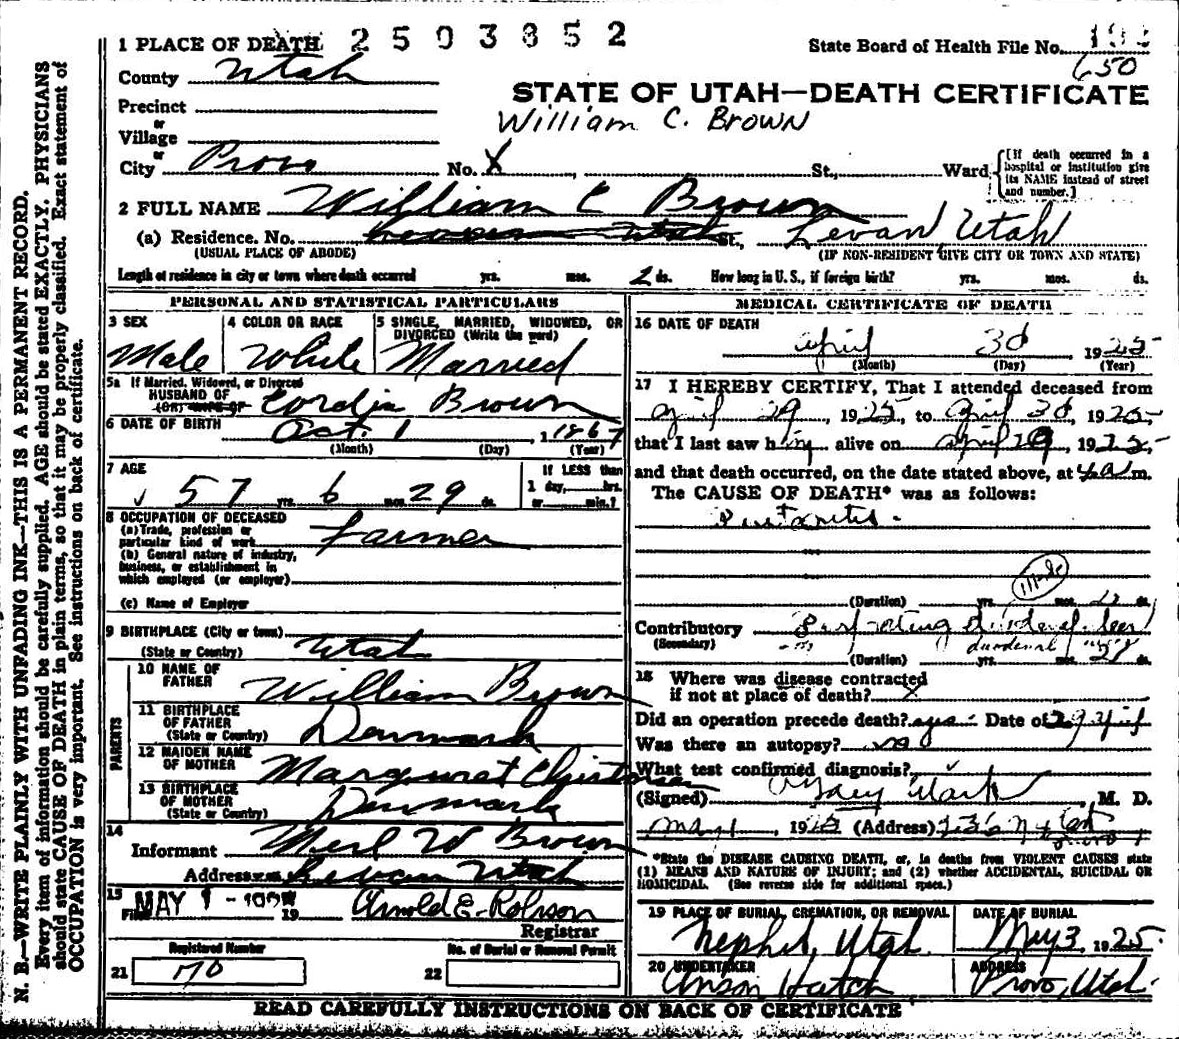 N. B.—WRITE PLAINLY WITH UNFADING INK—THIS IS A PERMANENT RECORD.
Every item of information should be carefully supplied. AGE should be stated EXACTLY. PHYSICIANS
should state CAUSE OF DEATH in plain terms, so that it may be properly classified. Exact statement of
OCCUPATION is very important. See instructions on back of certificate.
1 PLACE OF DEATH 2503852
State Board of Health File No.
650
County Utah
STATE OF UTAH—DEATH CERTIFICATE
William C. Brown
Precinct
or
Village
or
City Provo No. X St., Ward [If death occurred in a hospital or institution give its NAME instead of street and number.]
2 FULL NAME William C Brown
(a) Residence. No. Levan Utah St., Levan, Utah
(USUAL PLACE OF ABODE) (IF NON-RESIDENT GIVE CITY OR TOWN AND STATE)
Length of residence in city or town where death occurred yrs. mos. 2 ds. How long in U. S., if foreign birth? yrs. mos. ds.
PERSONAL AND STATISTICAL PARTICULARS
3 SEX Male
4 COLOR OR RACE White
5 SINGLE, MARRIED, WIDOWED, OR DIVORCED (Write the word) Married
5a If Married, Widowed, or Divorced
HUSBAND OF
(OR) WIFE OF Cordia Brown
6 DATE OF BIRTH Oct. 1 1867
(Month) (Day) (Year)
7 AGE 57 yrs. 6 mos. 29 ds.
If LESS than
1 day, hrs.
or min.?
8 OCCUPATION OF DECEASED
(a) Trade, profession or
particular kind of work Farmer
(b) General nature of industry,
business, or establishment in
which employed (or employer)
(c) Name of Employer
9 BIRTHPLACE (City or town)
(State or Country) Utah
PARENTS
10 NAME OF
FATHER William Brown
11 BIRTHPLACE
OF FATHER
(State or Country) Denmark
12 MAIDEN NAME
OF MOTHER Margurat Christena
13 BIRTHPLACE
OF MOTHER
(State or Country) Denmark
14
Informant Merl W Brown
Address Levan Utah
15 Filed MAY 1 - 1925 19 Arnold E. Robison
Registrar
Registered Number No. of Burial or Removal Permit
21 170 22
MEDICAL CERTIFICATE OF DEATH
16 DATE OF DEATH
April 30 1925
(Month) (Day) (Year)
17 I HEREBY CERTIFY, That I attended deceased from
April 29, 1925, to April 30, 1925
that I last saw him alive on April 29, 1925
and that death occurred, on the date stated above, at 4 a m.
The CAUSE OF DEATH* was as follows:
Peritonitis.
(Duration) yrs. mos. ds.
Contributory Perforating duodenal ulcer
(Secondary) duodenal
(Duration) yrs. mos. ds.
18 Where was disease contracted
if not at place of death? X
Did an operation precede death? yes Date of 29 April
Was there an autopsy? no
What test confirmed diagnosis?
(Signed) M. D.
May 1, 1925 (Address)
*State the DISEASE CAUSING DEATH, or, in deaths from VIOLENT CAUSES state
(1) MEANS AND NATURE OF INJURY; and (2) whether ACCIDENTAL, SUICIDAL OR
HOMICIDAL. (See reverse side for additional space.)
19 PLACE OF BURIAL, CREMATION, OR REMOVAL DATE OF BURIAL
Nephi, Utah May 3 1925.
20 UNDERTAKER ADDRESS
Anson Hatch Provo, Utah.
READ CAREFULLY INSTRUCTIONS ON BACK OF CERTIFICATE